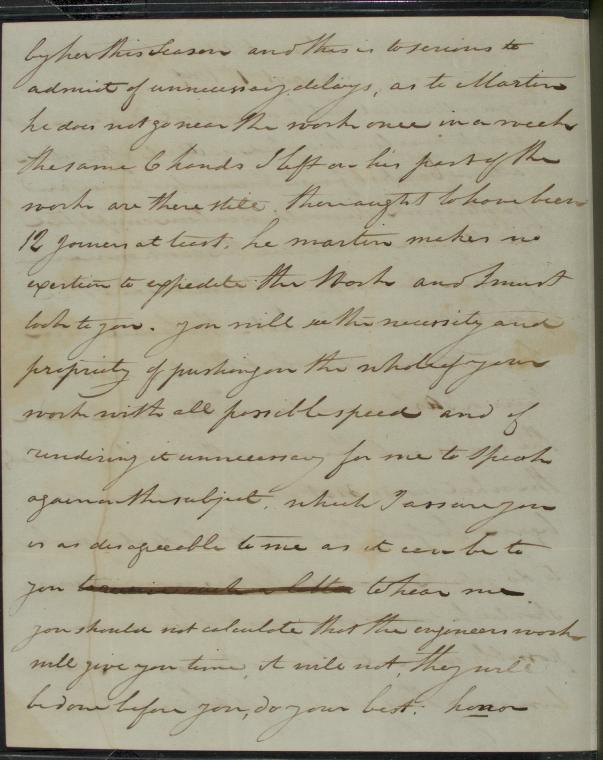 by her this Season and this is to serious to
admit of unnecessary delays, as to Martin
he does not go near the work once in a week
the same 6 hands I left on his part of the
work are there still. there aught to have been
12 Joiners at least. he martin makes no
exertion to expedite the Work and I must
look to you. you will see the necessity and
propriety of pushing on the whole of your
work with all possible speed and of
rendiring it unnecessary for me to Speak
again on the subject. which I assure you
is as disagreeable to me as it can be to
you to hear me
you should not calculate that the engineers work
will give you time, it will not, they will
be done before you, do your best. honor